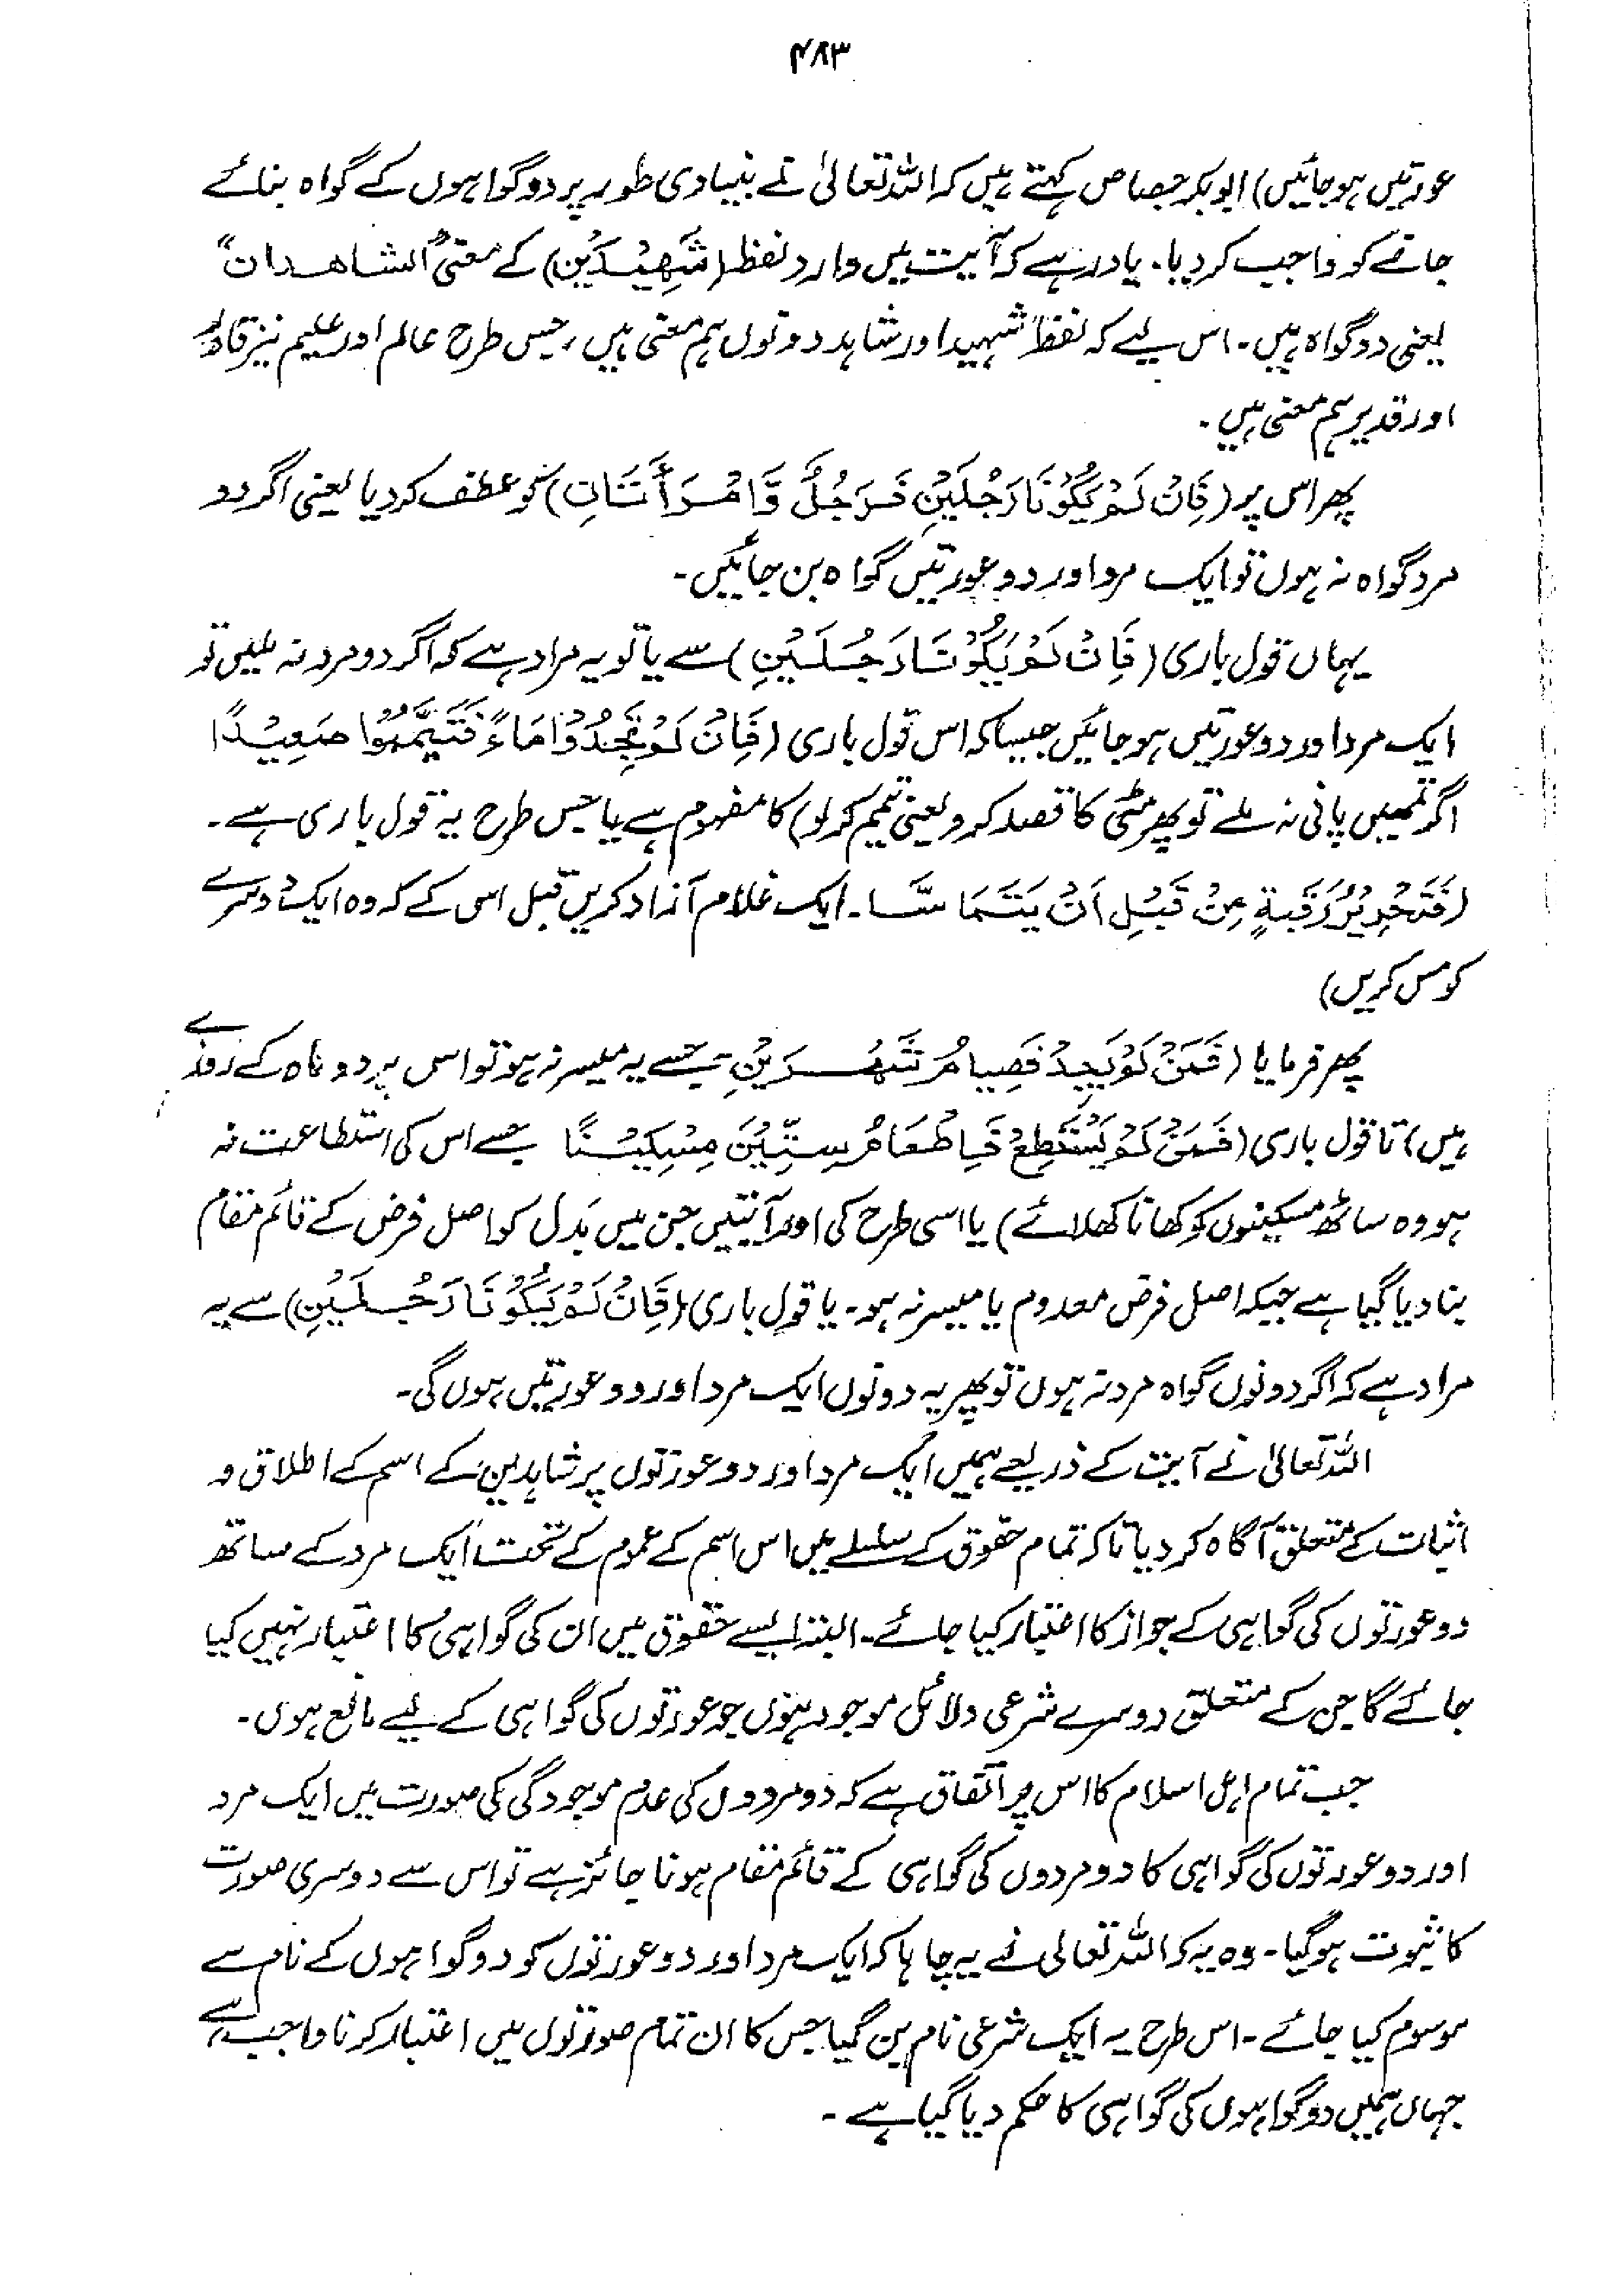 ۴۸۳
عورتیں ہوجائیں) ابوبکر جصاص کہتے ہیں کہ اللہ تعالیٰ نے بنیادی طور پر دو گواہوں کے گواہ بنائے
جانے کو واجب کردیا۔ یاد رہے کہ آیت میں وارد لفظ (شَهِيْدَيْنِ) کے معنی "الشاهدان"
یعنی دو گواہ ہیں۔ اس لیے کہ لفظ شہید اور شاہد دونوں ہم معنی ہیں، جس طرح عالم اور علیم نیز قادر
اور قدیر ہم معنی ہیں۔
پھر اس پر (فَاِنْ لَّمْ يَكُوْنَا رَجُلَيْنِ فَرَجُلٌ وَّامْرَأَتَانِ) کو عطف کردیا یعنی اگر دو
مرد گواہ نہ ہوں تو ایک مرد اور دو عورتیں گواہ بن جائیں۔
یہاں قول باری (فَاِنْ لَّمْ يَكُوْنَا رَجُلَيْنِ) سے یا تو یہ مراد ہے کہ اگر دو مرد نہ ملیں تو
ایک مرد اور دو عورتیں ہوجائیں جیسا کہ اس قول باری (فَاِنْ لَّمْ تَجِدُوْا مَاءً فَتَيَمَّمُوْا صَعِيْدًا
اگر تمھیں پانی نہ ملے تو پھر مٹی کا قصد کرو یعنی تیمم کرلو) کا مفہوم ہے یا جس طرح یہ قول باری ہے۔
(فَتَحْرِيْرُ رَقَبَةٍ مِنْ قَبْلِ اَنْ يَتَمَاسَّا۔ ایک غلام آزاد کریں قبل اس کے کہ وہ ایک دوسرے
کو مس کریں)
پھر فرمایا (فَمَنْ لَّمْ يَجِدْ فَصِيَامُ شَهْرَيْنِ جسے یہ میسر نہ ہو تو اس پر دو ماہ کے روزے
ہیں) تا قول باری (فَمَنْ لَّمْ يَسْتَطِعْ فَاِطْعَامُ سِتِّيْنَ مِسْكِيْنًا جسے اس کی استطاعت نہ
ہو وہ ساٹھ مسکینوں کو کھانا کھلائے) یا اسی طرح کی اور آیتیں جن میں بدل کو اصل فرض کے قائم مقام
بنا دیا گیا ہے جبکہ اصل فرض معدوم یا میسر نہ ہو۔ یا قول باری (فَاِنْ لَّمْ يَكُوْنَا رَجُلَيْنِ) سے یہ
مراد ہے کہ اگر دونوں گواہ مرد نہ ہوں تو پھر یہ دونوں ایک مرد اور دو عورتیں ہوں گی۔
اللہ تعالیٰ نے آیت کے ذریعے ہمیں ایک مرد اور دو عورتوں پر شاہدین کے اسم کے اطلاق و
اثبات کے متعلق آگاہ کردیا تاکہ تمام حقوق کے سلسلے میں اس اسم کے عموم کے تحت ایک مرد کے ساتھ
دو عورتوں کی گواہی کے جواز کا اعتبار کیا جائے۔ البتہ ایسے حقوق میں ان کی گواہی کا اعتبار نہیں کیا
جائے گا جن کے متعلق دوسرے شرعی دلائل موجود ہوں جو عورتوں کی گواہی کے لیے مانع ہوں۔
جب تمام اہل اسلام کا اس پر اتفاق ہے کہ دو مردوں کی عدم موجودگی کی صورت میں ایک مرد
اور دو عورتوں کی گواہی کا دو مردوں کی گواہی کے قائم مقام ہونا جائز ہے تو اس سے دوسری صورت
کا ثبوت ہوگیا۔ وہ یہ کہ اللہ تعالی نے یہ چاہا کہ ایک مرد اور دو عورتوں کو دو گواہوں کے نام سے
موسوم کیا جائے۔ اس طرح یہ ایک شرعی نام بن گیا جس کا ان تمام صورتوں میں اعتبار کرنا واجب ہے
جہاں ہمیں دو گواہوں کی گواہی کا حکم دیا گیا ہے۔